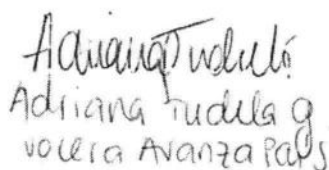 Adriana Tudela
Adriana Tudela G
vocera Avanza País